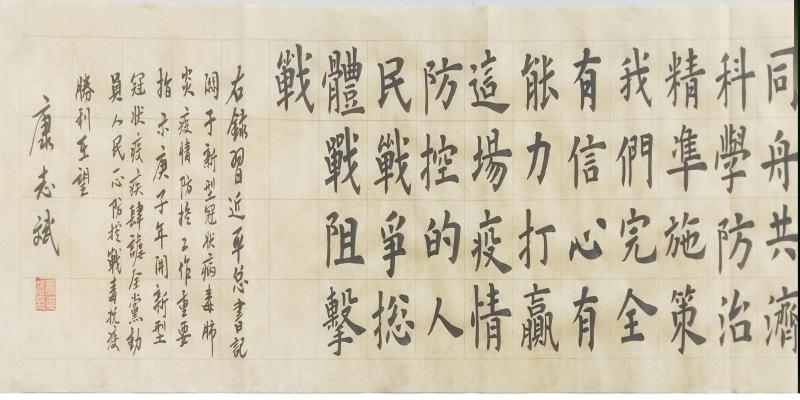 同舟共濟
科學防治
精準施策
我們完全
有信心有
能力打贏
這場疫情
防控的人
民戰爭総
體戰阻擊
戰
右錄習近平總書記
關于新型冠狀病毒肺
炎疫情防控工作重要
指示庚子年開新型
冠狀疫疾肆讓全黨動
員人民正防控戰毒抗疫
勝利在望
康志斌